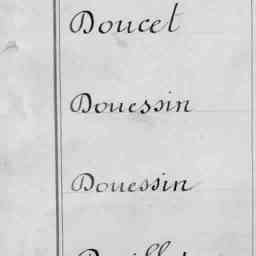 Doucet
Douessin
Douessin